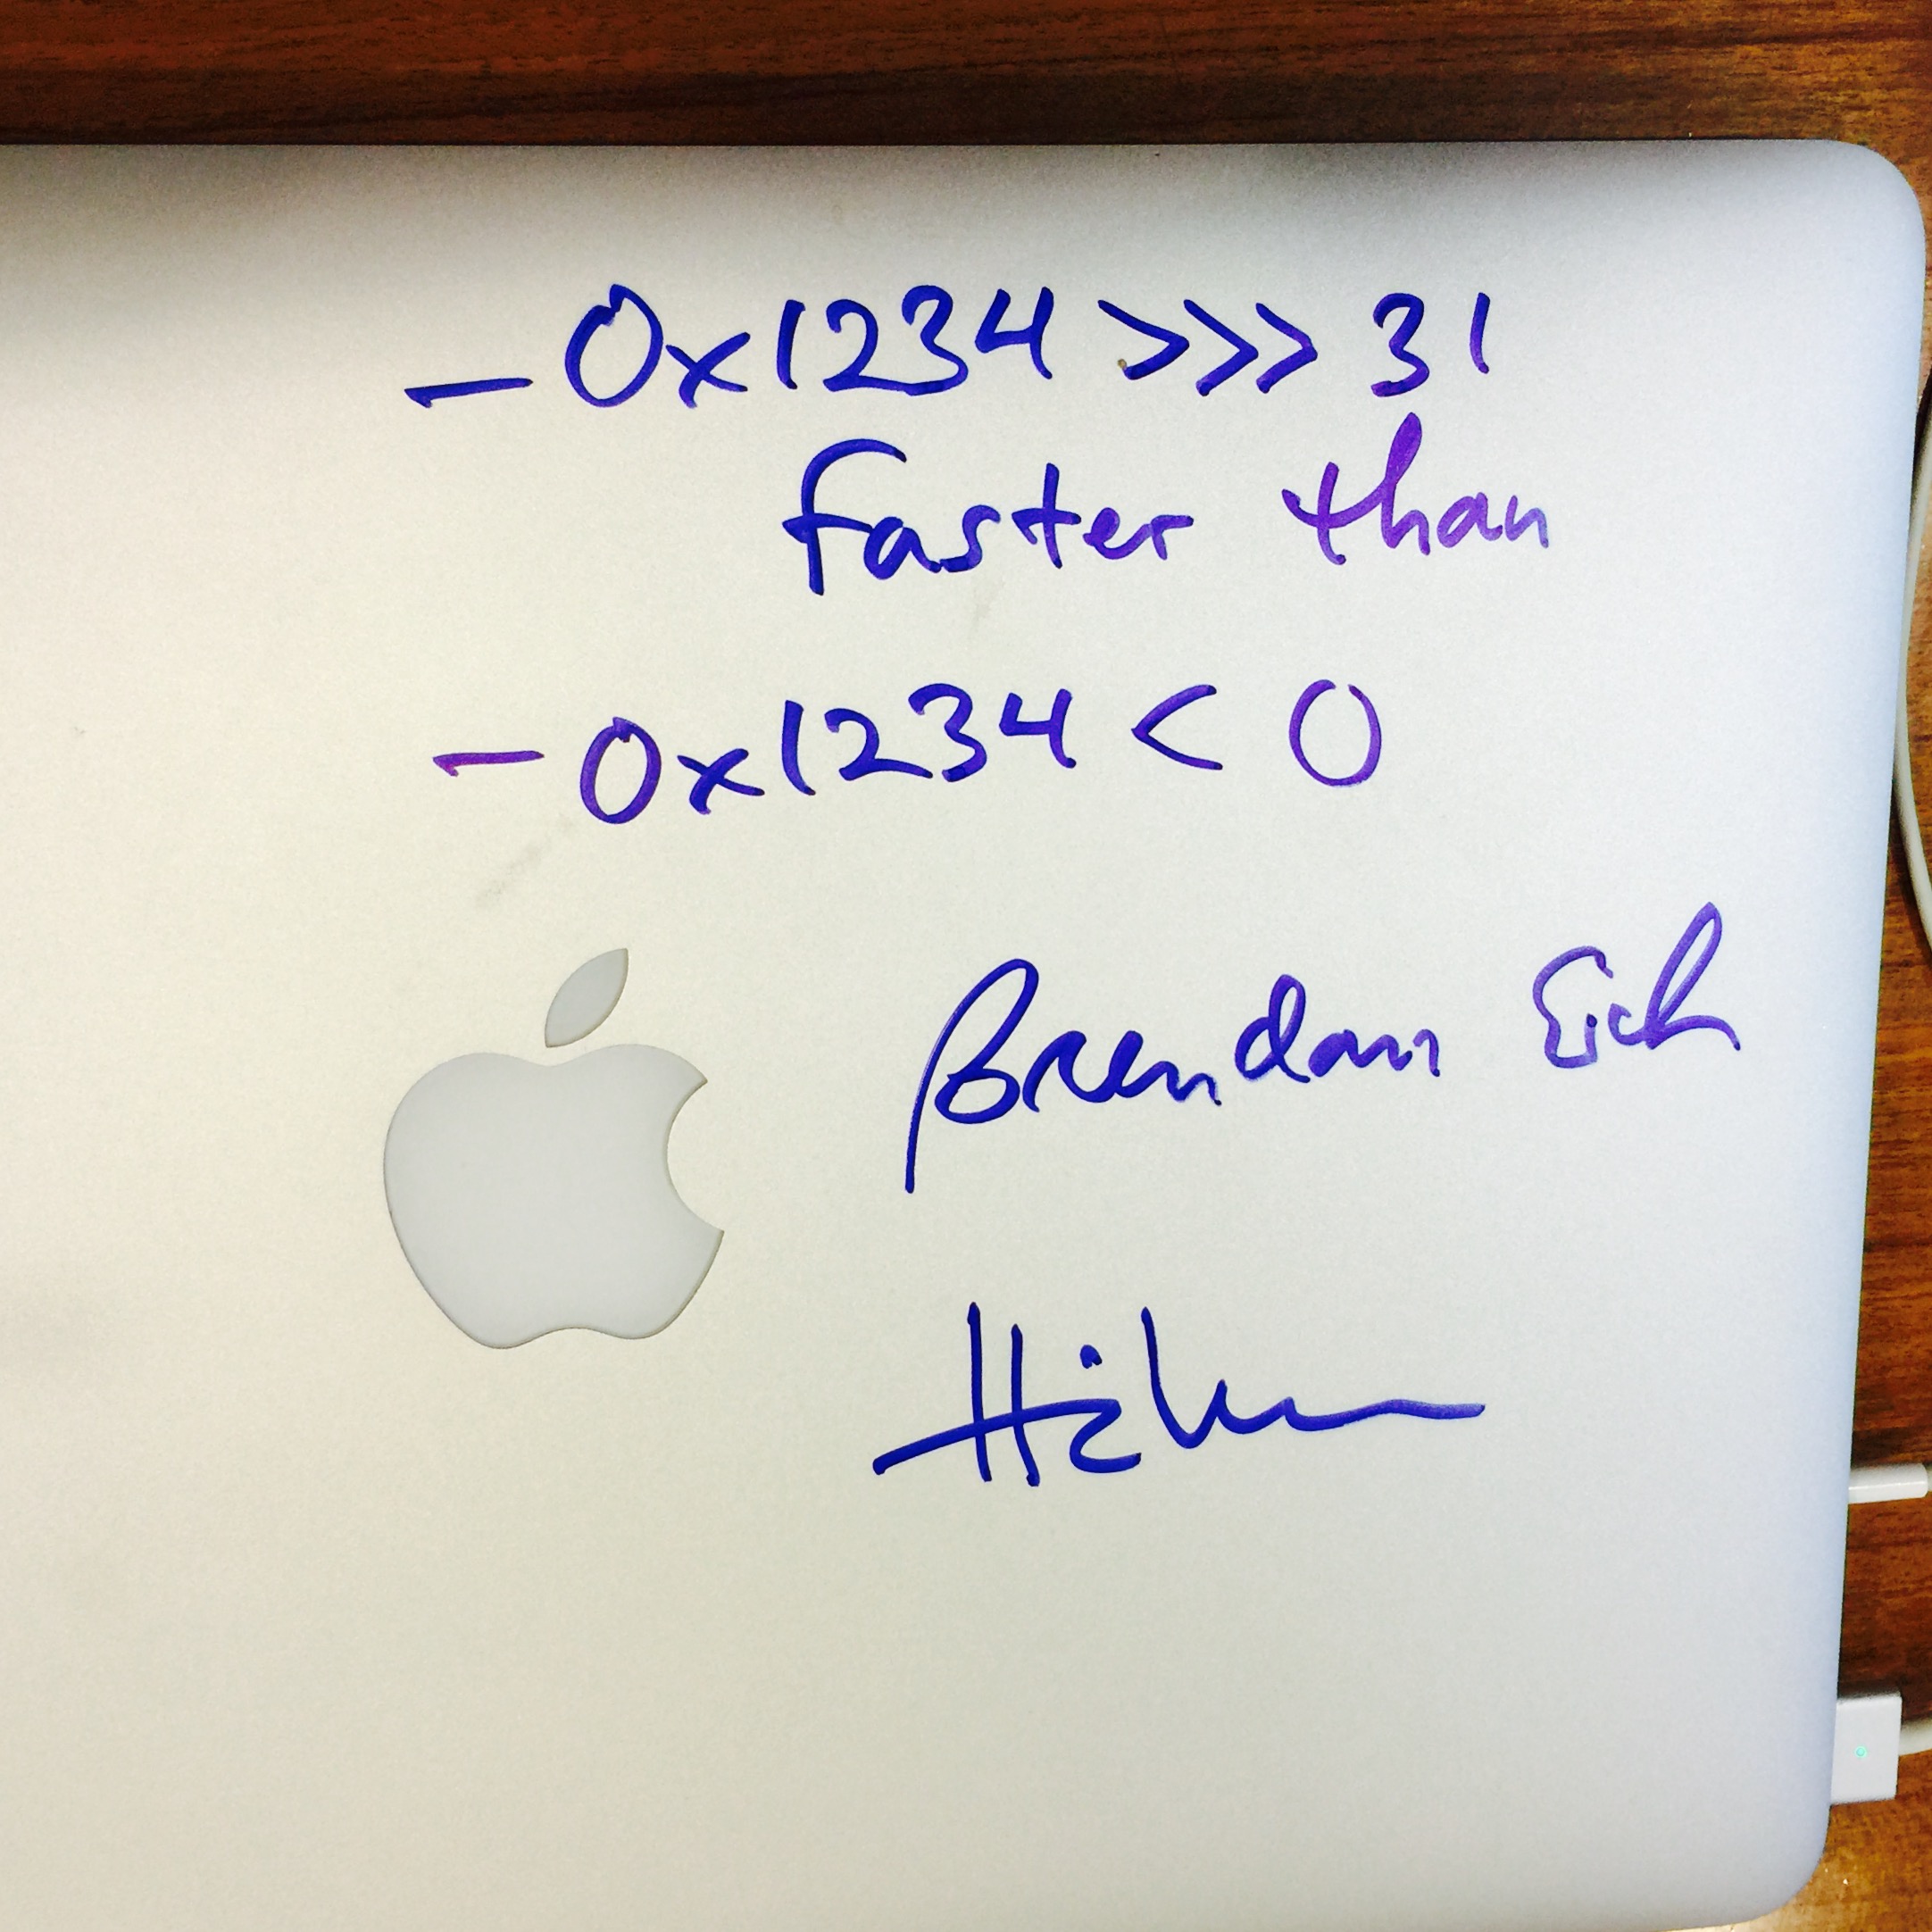 -0x1234 >>> 31
faster than
-0x1234 < 0
Brendan Eich